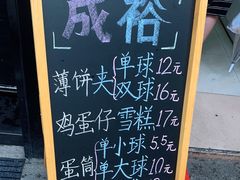 成裕
薄饼夹 单球12元
双球16元
鸡蛋仔雪糕17元
蛋筒 单小球5.5元
单大球10元